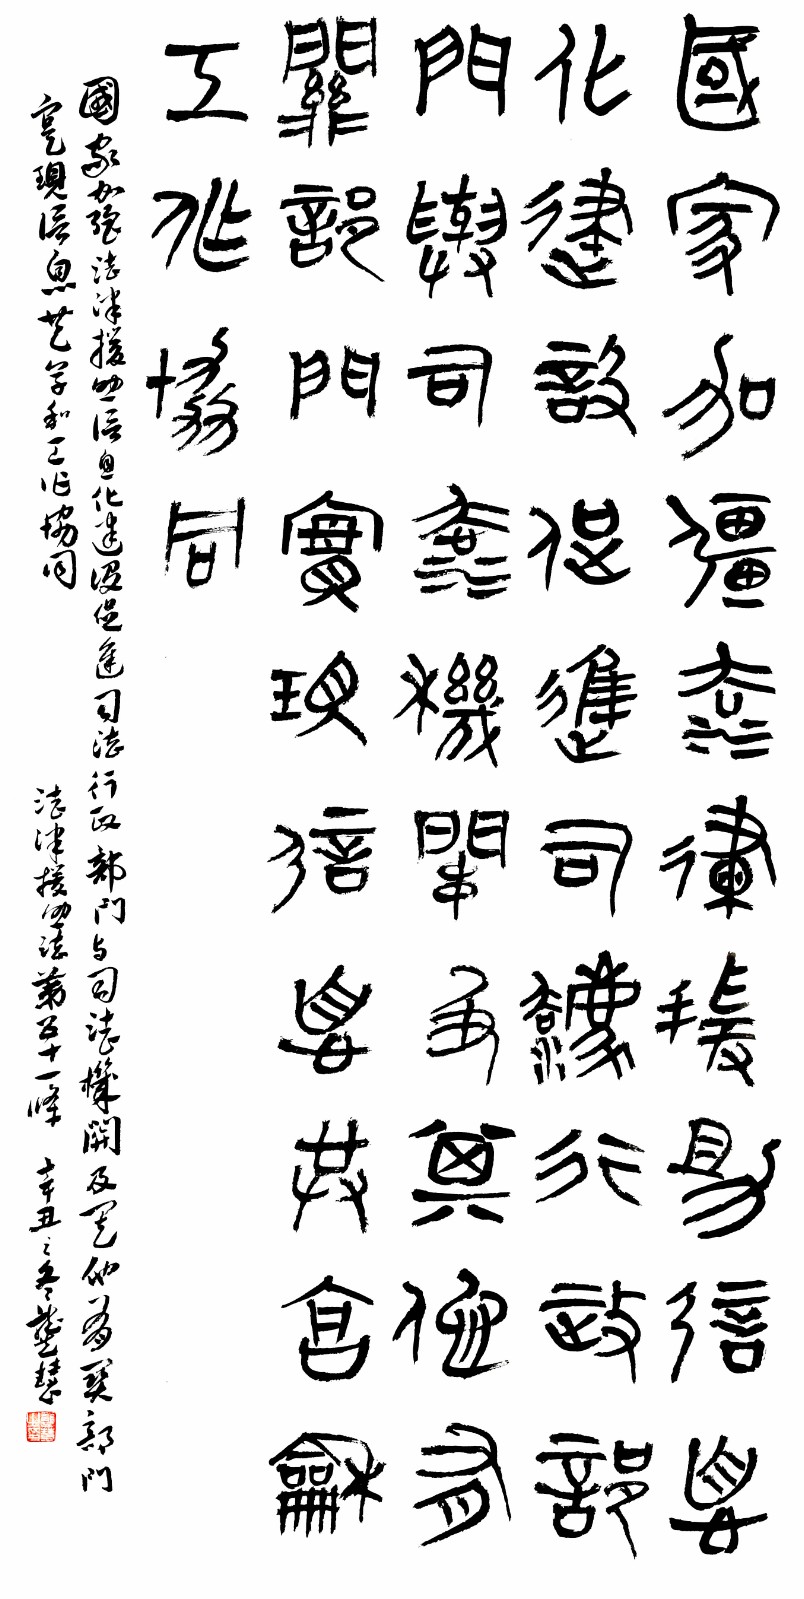 國家加彊法律援助信息
化建設促進司灋行政部
門與司法機關及其他有
關部門實現信息共享龢
工作協同
國家加強法律援助信息化建設促進司法行政部門与司法機關及其他有关部門
實現信息共享和工作協同 法律援助法第五十一條 辛丑之冬